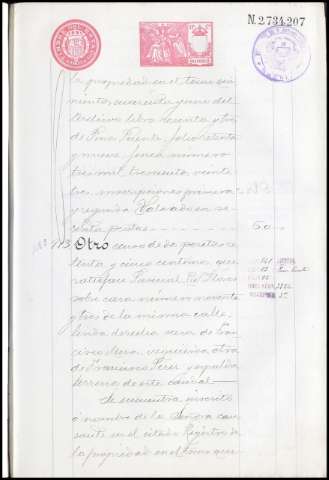 N. 2.734,207
la propiedad en el tomo qui
nientos cuarenta y nueve del
libro
de Pino Puente, folio setenta
y nueve, finca número
tres mil trescientos veinte
tres, inscripciones primera
y segunda. Valuado en se
senta pesetas 60
113 Otro censo de dos pesetas se
tenta y cinco céntimos que
satisface Pascual
sobre casa número noventa
y tres de la misma calle,
linda derecha casa de Fran
cisco Mora, izquierda otra
de Francisco Pérez y espalda
terreno de este caudal
Se encuentra inscrito
a nombre de la Señora cau
sante en el citado Registro de
la propiedad en el tomo qui